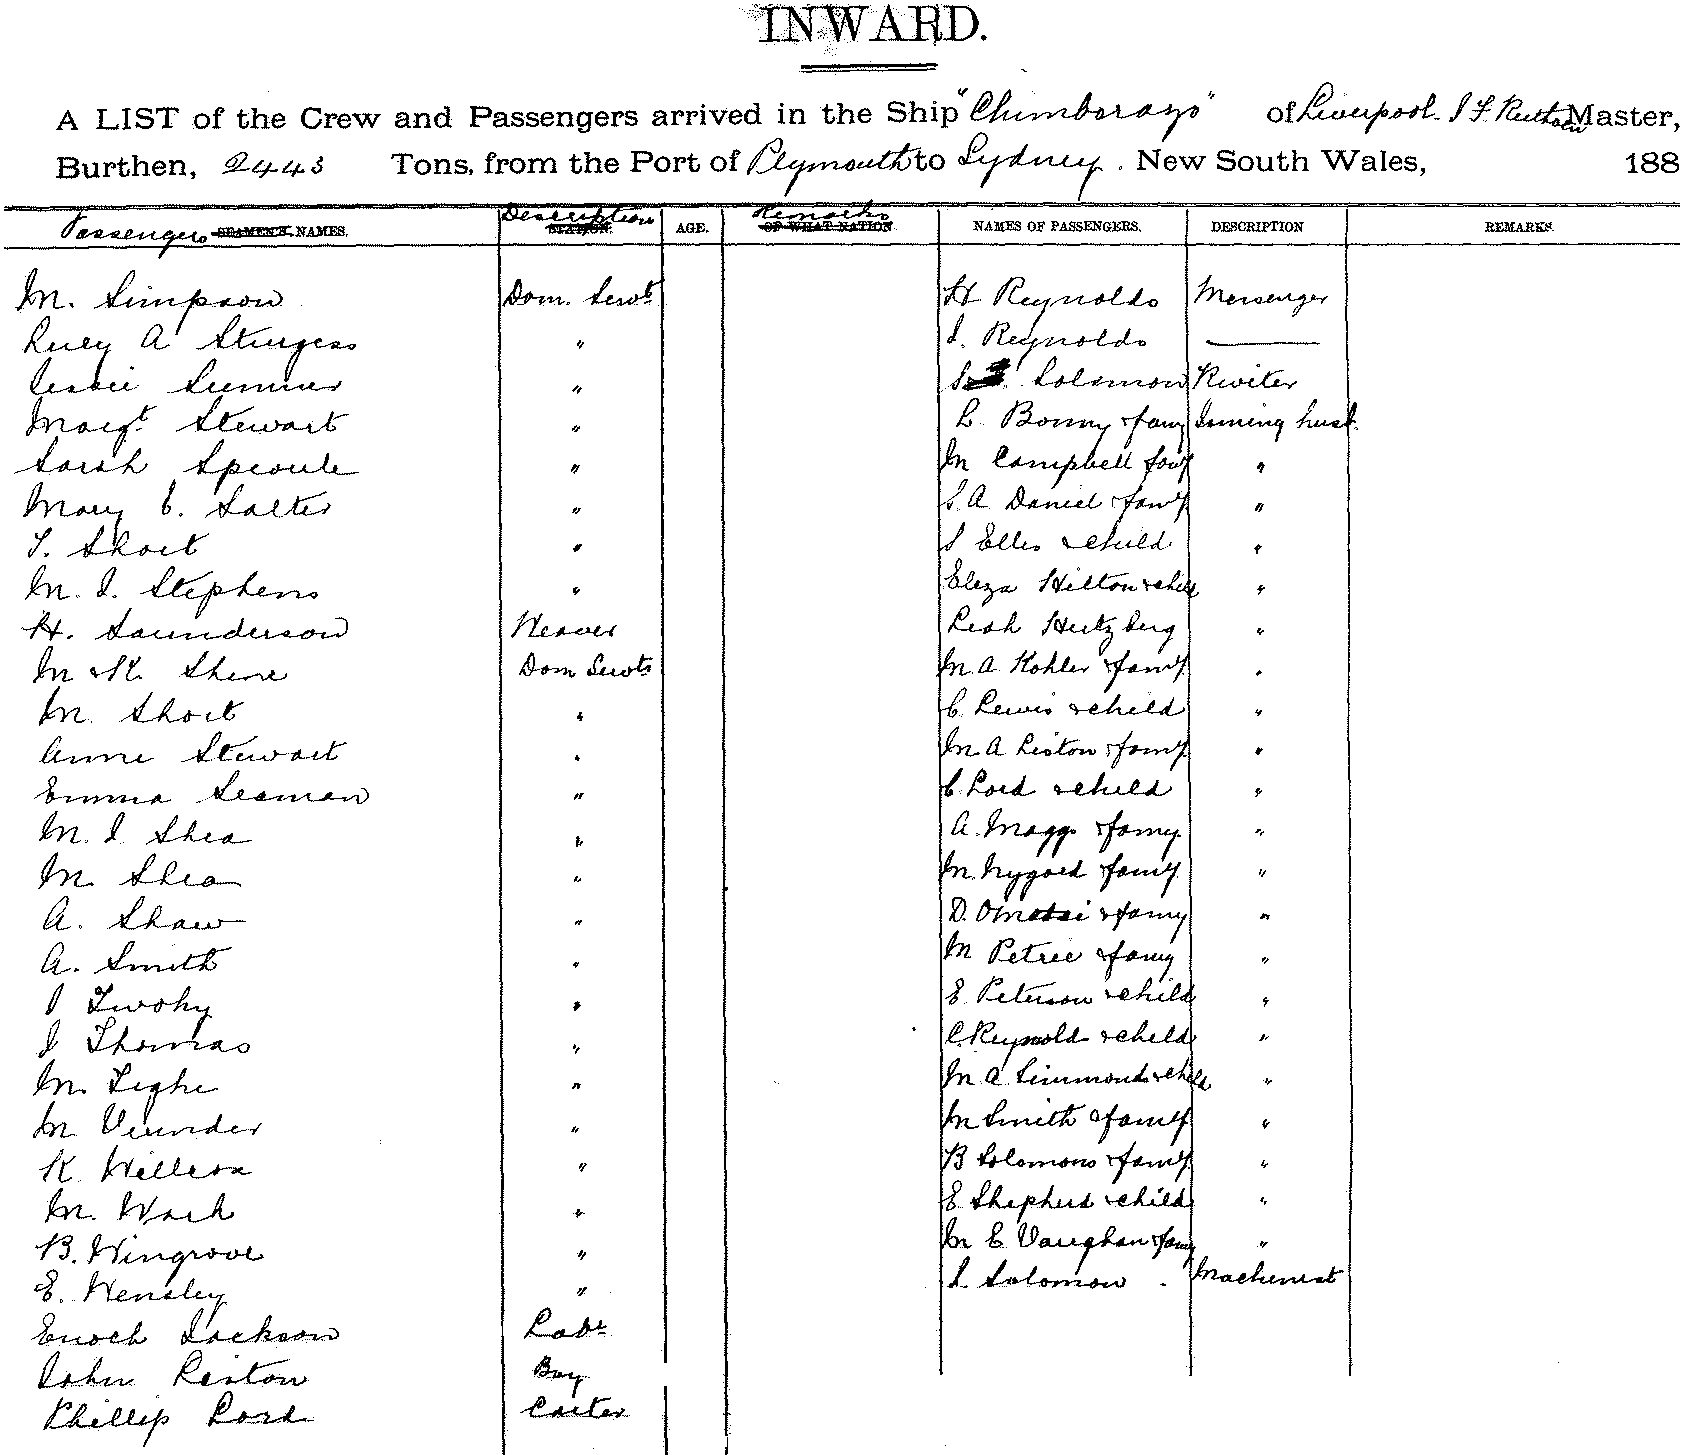 INWARD.
A LIST of the Crew and Passengers arrived in the Ship "Chimborazo" of Liverpool. Master,
Burthen, 2443 Tons, from the Port of Plymouth to Sydney. New South Wales, 188
Passengers SEAMEN'S NAMES. Description STATION. AGE. Remarks OF WHAT NATION NAMES OF PASSENGERS. DESCRIPTION REMARKS.
M. Simpson Dom. Servt H Reynolds Messenger
Lucy A Sturgess " S. Reynolds
Jessie Sumner " Solomon Riviter
Margt. Stewart " L. Bonny & famy Joining husb.
Sarah Sproule " M Campbell famy "
Mary E. Salter " S. A Daniel & famy "
S. Short " S Ellis & child "
M. J. Stephens " Eliza Hilton & child "
H. Saunderson Weaver Leah Hertzberg "
M & K. Shine Dom Servts M. A Kohler & famy "
M. Short " C. Lewis & child "
Anne Stewart " M A Liston & famy "
Emma Seaman " C Lord & child "
M. J. Shea " A. Maggs & famy "
M. Shea " M. Nygard famy "
A. Shaw " D. & famy "
A. Smith " M Petrie & famy "
J Twohy " E. Peterson & child "
J Thomas " C Reynold & child "
M. Tighe " M A Simmonds & child "
M " M Smith & famy "
K " B Solomons & famy "
M. " E Shepherd & child "
B. Wingrove " M E Vaughan & famy "
E. Hensley " S. Solomon Machinist
Enoch Jackson Labr
John Liston Boy
Phillip Lord Carter